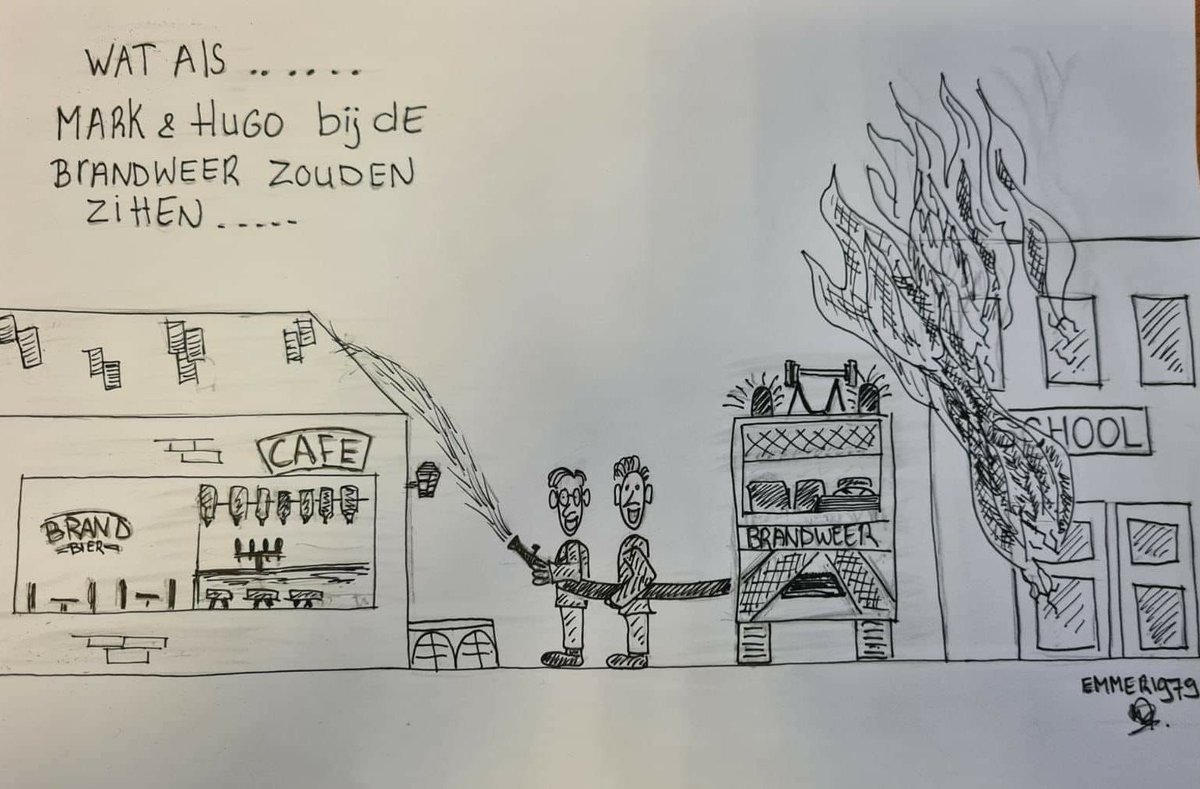 WAT AlS .......
MARK & HUGO bij dE
BrANDWEER ZOUDEN
ZiTTEN .....
CAFE
BRAND
BIER
BRANDWEER
SCHOOL
EMMER1979